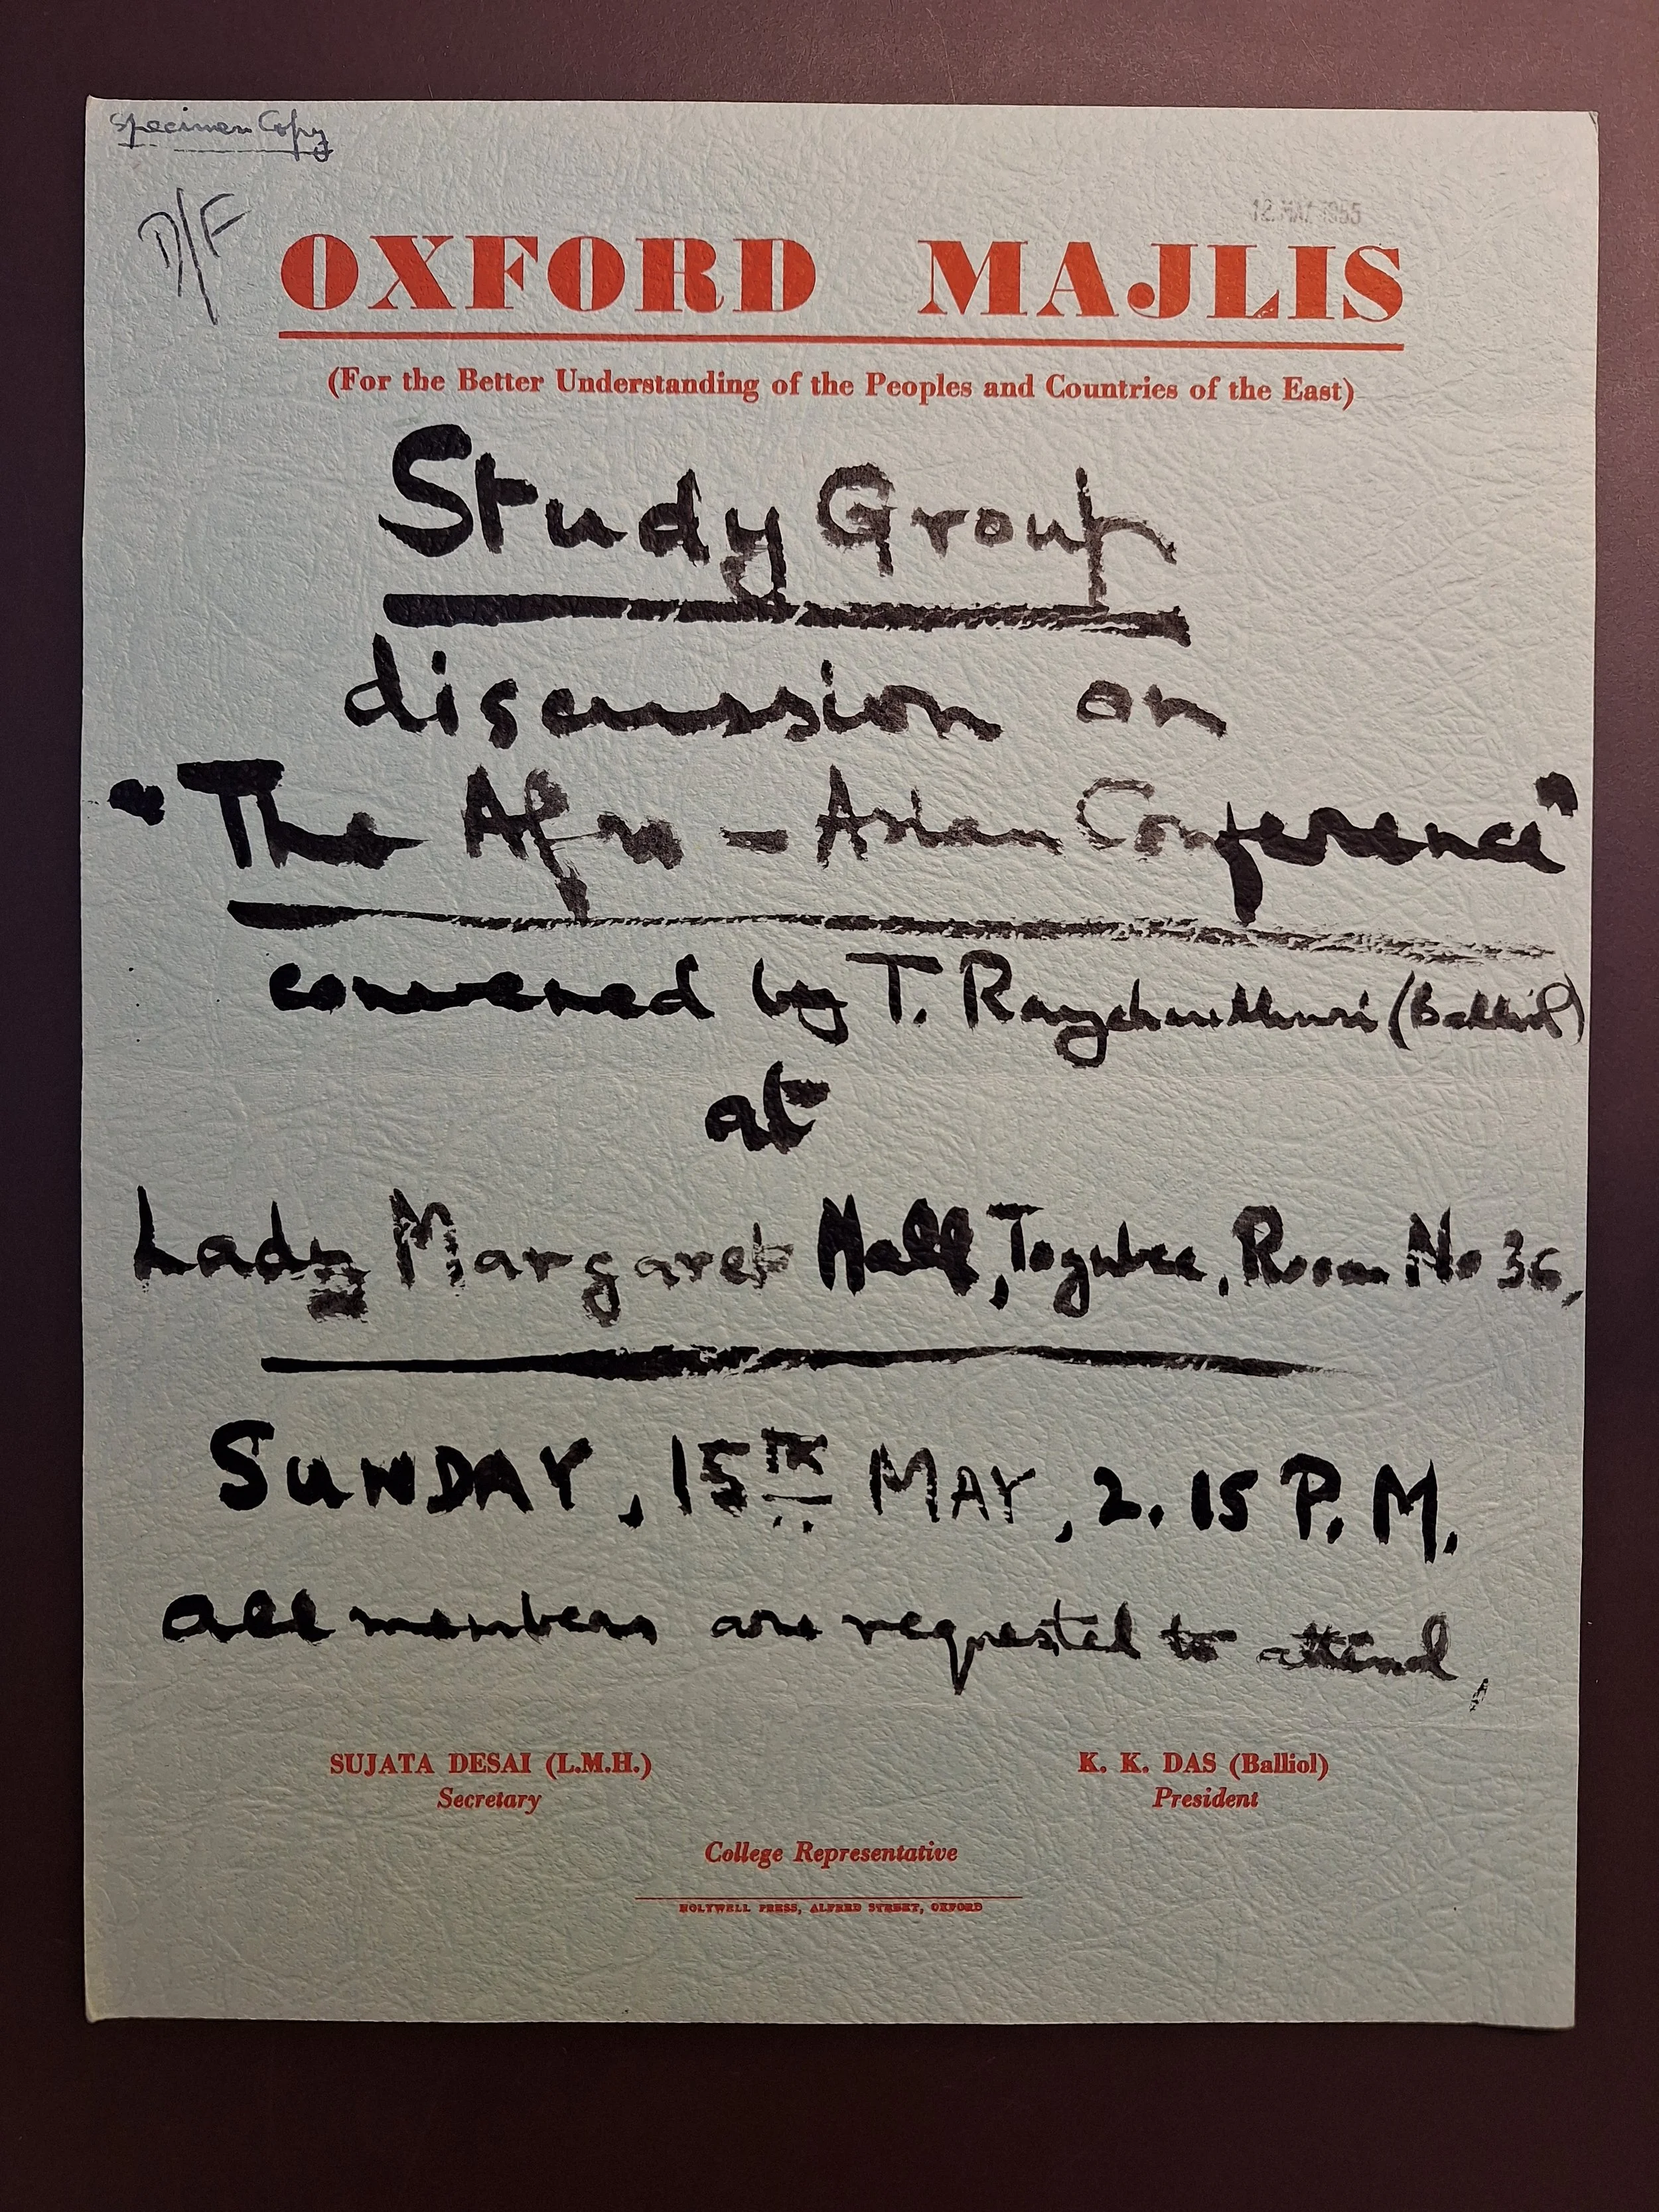 Specimen Copy
D/F
12 MAY 1955
OXFORD MAJLIS
(For the Better Understanding of the Peoples and Countries of the East)
Study Group
discussion on
"The Afro-Asian Conference"
convened by T. Raychaudhuri (Balliol)
at
Lady Margaret Hall, Toynbee, Room No 36,
SUNDAY, 15TH MAY, 2.15 P.M.
all members are requested to attend,
SUJATA DESAI (L.M.H.) K. K. DAS (Balliol)
Secretary President
College Representative
HOLYWELL PRESS, ALFRED STREET, OXFORD